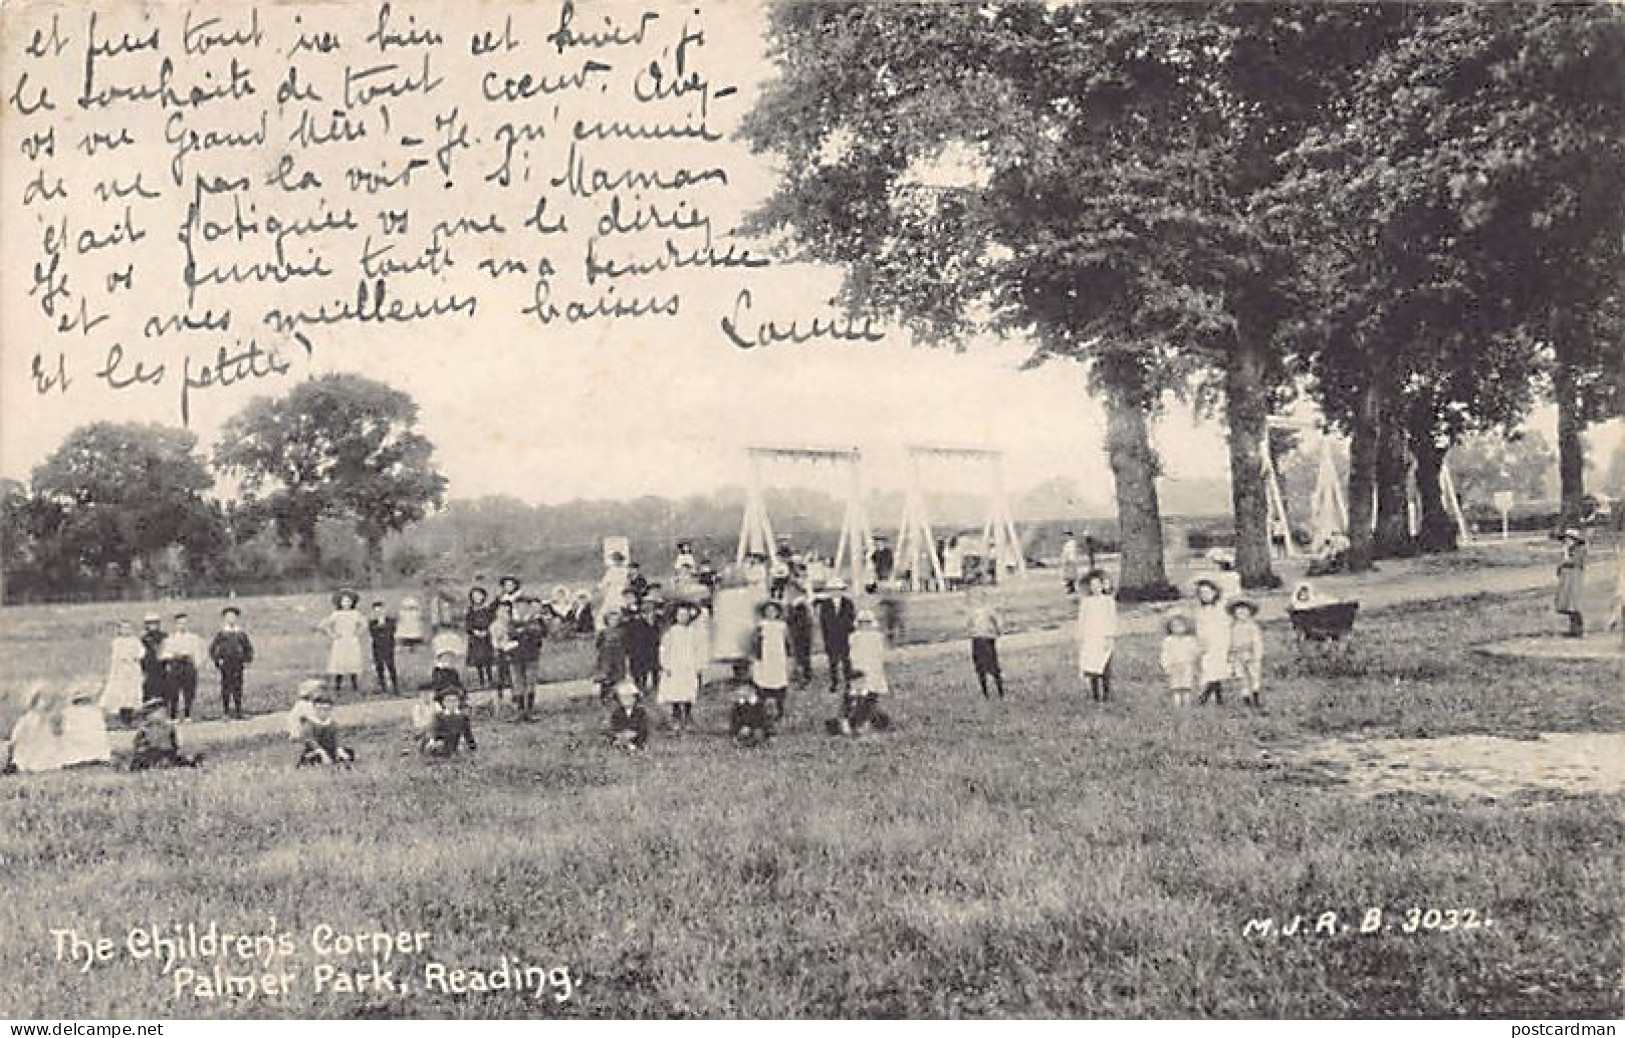 et puis tout ira bien cet hiver, je
le souhaite de tout cœur. Avez-
vs vu Grand Mère! _ Je m'ennuie
de ne pas la voir. Si Maman
était fatiguée vs me le diriez.
Je vs envoie toute ma tendresse
et mes meilleurs baisers
Et les petite!
The Children's Corner
Palmer Park, Reading.
M.J.R.B. 3032.
delcampe.net
postcardman